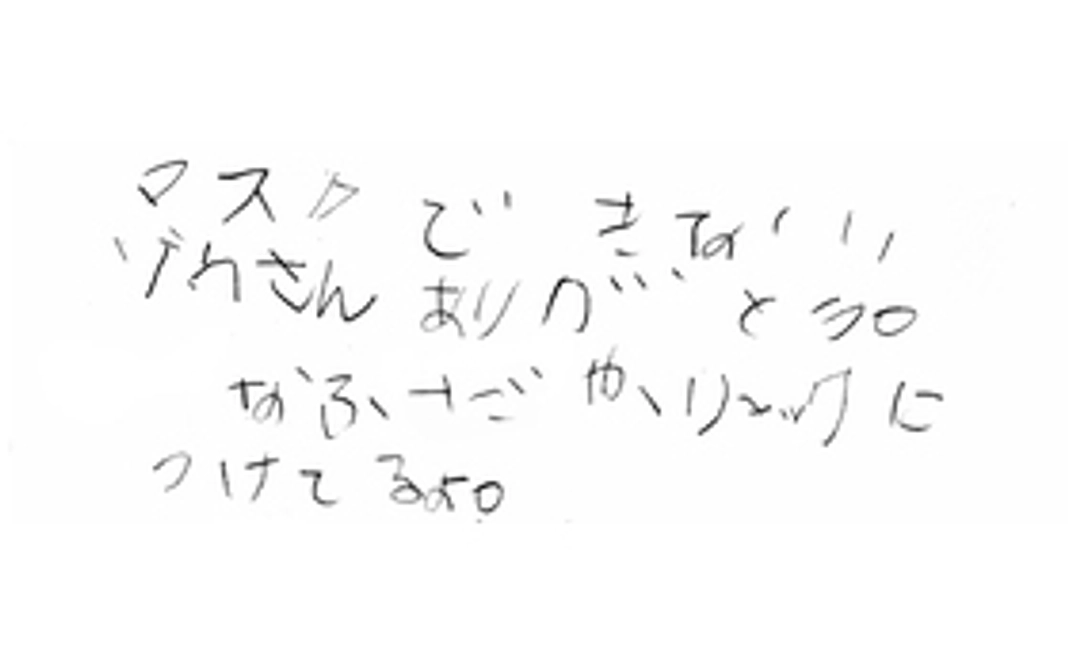 マスクできない
ゾウさんありがとう。
なふだやリュックに
つけてるよ。